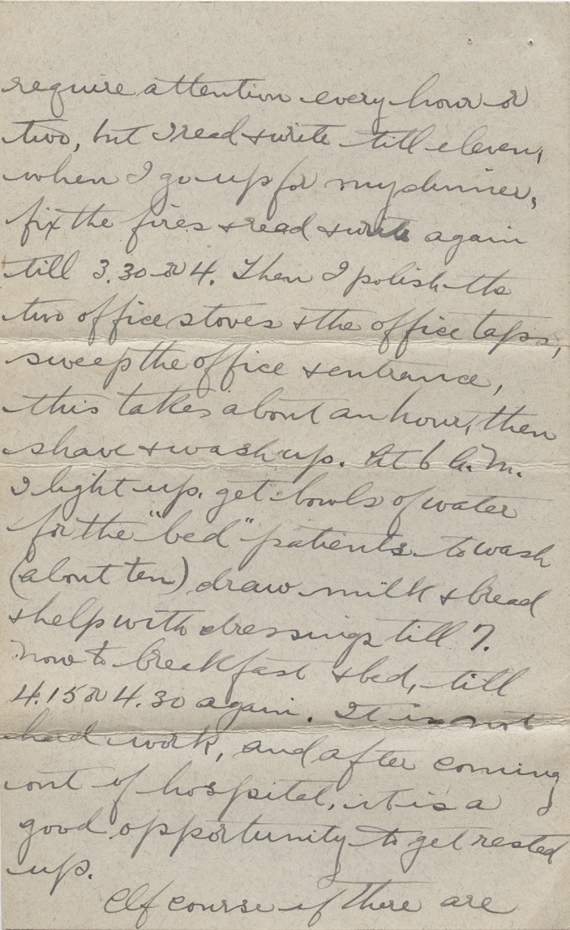 require attention every hour or
two, but I read & write till eleven,
when I go up for my dinner,
fix the fires & read & write again
till 3.30 or 4. Then I polish the
two office stoves & the office taps,
sweep the office & entrance,
this takes about an hour, then
shave & wash up. At 6 a.m.
I light up, get bowls of water
for the "bed" patients to wash
(about ten) draw milk & bread
& help with dressings till 7.
now to breakfast & bed, till
4.15 or 4.30 again. It is not
hard work, and after coming
out of hospital, it is a
good opportunity to get rested
up.
Of course if there are